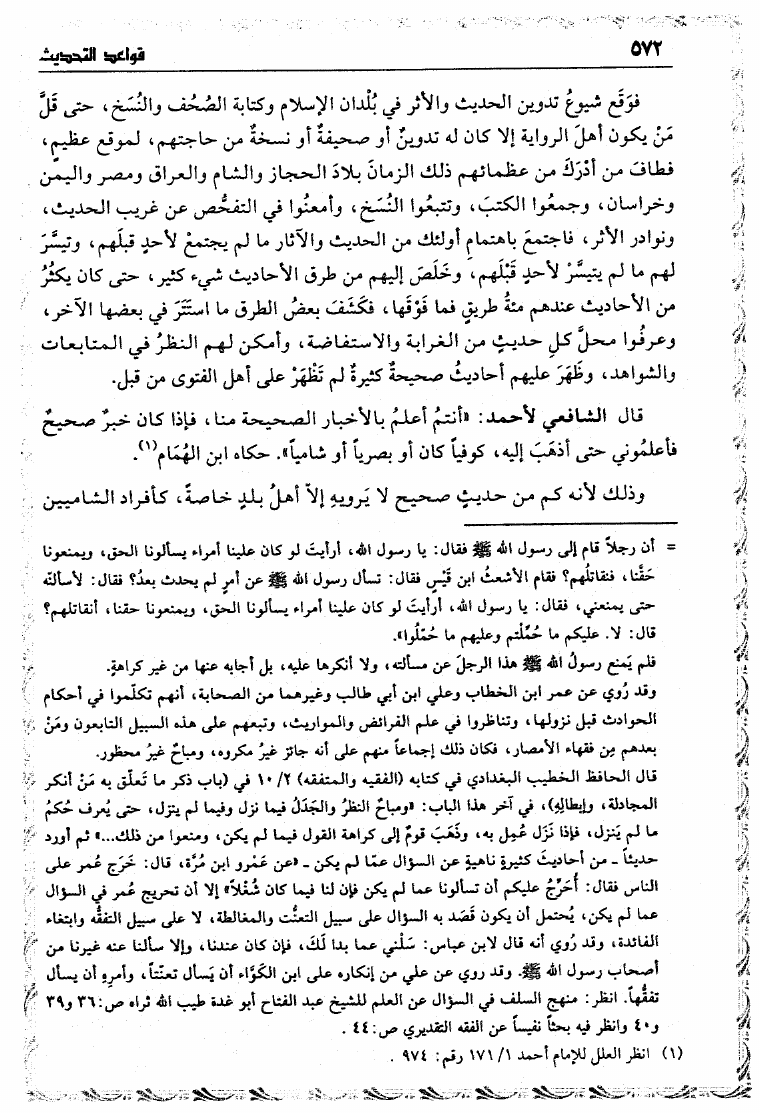 ٥٧٢
قواعد التحديث
فوَقَع شيوعُ تدوين الحديث والأثر في بُلْدان الإسلام وكتابة الصُحُف والنُسَخ، حتى قَلَّ
مَنْ يكون أهلَ الرواية إلا كان له تدوينٌ أو صحيفةٌ أو نسخةٌ من حاجتهم، لموقع عظيمٍ،
فطافَ من أدْرَكَ من عظمائهم ذلك الزمانَ بلادَ الحجاز والشام والعراق ومصر واليمن
وخراسان، وجمعُوا الكتبَ، وتتبعُوا النُسَخ، وأمعنُوا في التفحُّص عن غريب الحديث،
ونوادر الأثر، فاجتمعَ باهتمامِ أولئك من الحديث والآثار ما لم يجتمعْ لأحدٍ قبلَهم، وتيسَّرَ
لهم ما لم يتيسَّرْ لأحدٍ قَبْلَهم، وخَلَصَ إليهم من طرق الأحاديث شيء كثير، حتى كان يكثُرُ
من الأحاديث عندهم مئةُ طريقٍ فما فَوْقَها، فكَشَفَ بعضُ الطرق ما استَتَرَ في بعضها الآخر،
وعرفُوا محلَّ كلِ حديثٍ من الغرابة والاستفاضة، وأمكن لهم النظرُ في المتابعات
والشواهد، وظَهَرَ عليهم أحاديثُ صحيحةٌ كثيرةٌ لم تَظْهَرْ على أهل الفتوى من قبل.
قال الشافعي لأحمد: «أنتمُ أعلمُ بالأخبار الصحيحة منا، فإذا كان خبرٌ صحيحٌ
فأعلمُوني حتى أذهَبَ إليه، كوفياً كان أو بصرياً أو شامياً». حكاه ابن الهُمَام(١).
وذلك لأنه كم من حديثٍ صحيح لا يَرويهِ إلاّ أهلُ بلدٍ خاصةً، كأفراد الشاميين
= أن رجلاً قام إلى رسول الله ﷺ فقال: يا رسول الله، أرأيتَ لو كان علينا أمراء يسألونا الحق، ويمنعونا
حَقَّنا، فنقاتلُهم؟ فقام الأشعثُ ابن قَيْسٍ فقال: تسأل رسول الله ﷺ عن أمرٍ لم يحدث بعدُ؟ فقال: لأسألنّه
حتى يمنعني، فقال: يا رسول الله، أرأيتَ لو كان علينا أمراء يسألونا الحق، ويمنعونا حقنا، أنقاتلهم؟
قال: لا. عليكم ما حُمِّلْتم وعليهم ما حُمّلُوا».
فلم يَمنع رسولُ الله ﷺ هذا الرجلَ عن مسألته، ولا أنكرها عليه، بل أجابه عنها من غير كراهةٍ.
وقد رُوي عن عمر ابن الخطاب وعلي ابن أبي طالب وغيرهما من الصحابة، أنهم تكلّموا في أحكام
الحوادث قبل نزولها، وتناظروا في علم الفرائض والمواريث، وتبعهم على هذه السبيل التابعون ومَنْ
بعدهم مِن فقهاء الأمصار، فكان ذلك إجماعاً منهم على أنه جائز غيرُ مكروه، ومباحٌ غيرُ محظور.
قال الحافظ الخطيب البغدادي في كتابه (الفقيه والمتفقه) ١٠/٢ في (باب ذكر ما تَعلّق به مَنْ أنكر
المجادلة، وإبطالِهِ)، في آخر هذا الباب: «ومباحٌ النظرُ والجَدَلُ فيما نزل وفيما لم ينزل، حتى يُعرف حُكمُ
ما لم يَنزل، فإذا نَزَل عُمِل به، وذَهَبَ قومٌ إلى كراهة القول فيما لم يكن، ومنعوا من ذلك...» ثم أورد
حديثاً ـ من أحاديثَ كثيرةٍ ناهيةٍ عن السؤال عمّا لم يكن ـ «عن عَمْرو ابن مُرَّة، قال: خَرَج عُمر على
الناس فقال: أُحَرِّجُ عليكم أن تسألونا عما لم يكن فإن لنا فيما كان شُغْلاً» إلا أن تحريج عُمر في السؤال
عما لم يكن، يُحتمل أن يكون قَصَد به السؤال على سبيل التعنُّت والمغالطة، لا على سبيل التفقُّه وابتغاء
الفائدة، وقد رُوي أنه قال لابن عباس: سَلْني عما بدا لَكَ، فإن كان عندنا، وإلا سألنا عنه غيرنا من
أصحاب رسول الله ﷺ. وقد روي عن علي من إنكاره على ابن الكَوَّاء أن يَسأل تعنّتاً، وأمرِهِ أن يسأل
تفقُّهاً. انظر: منهج السلف في السؤال عن العلم للشيخ عبد الفتاح أبو غدة طيب الله ثراه ص:٣٦ و٣٩
و٤٠ وانظر فيه بحثاً نفيساً عن الفقه التقديري ص:٤٤.
(١) انظر العلل للإمام أحمد ١/ ١٧١ رقم: ٩٧٤.